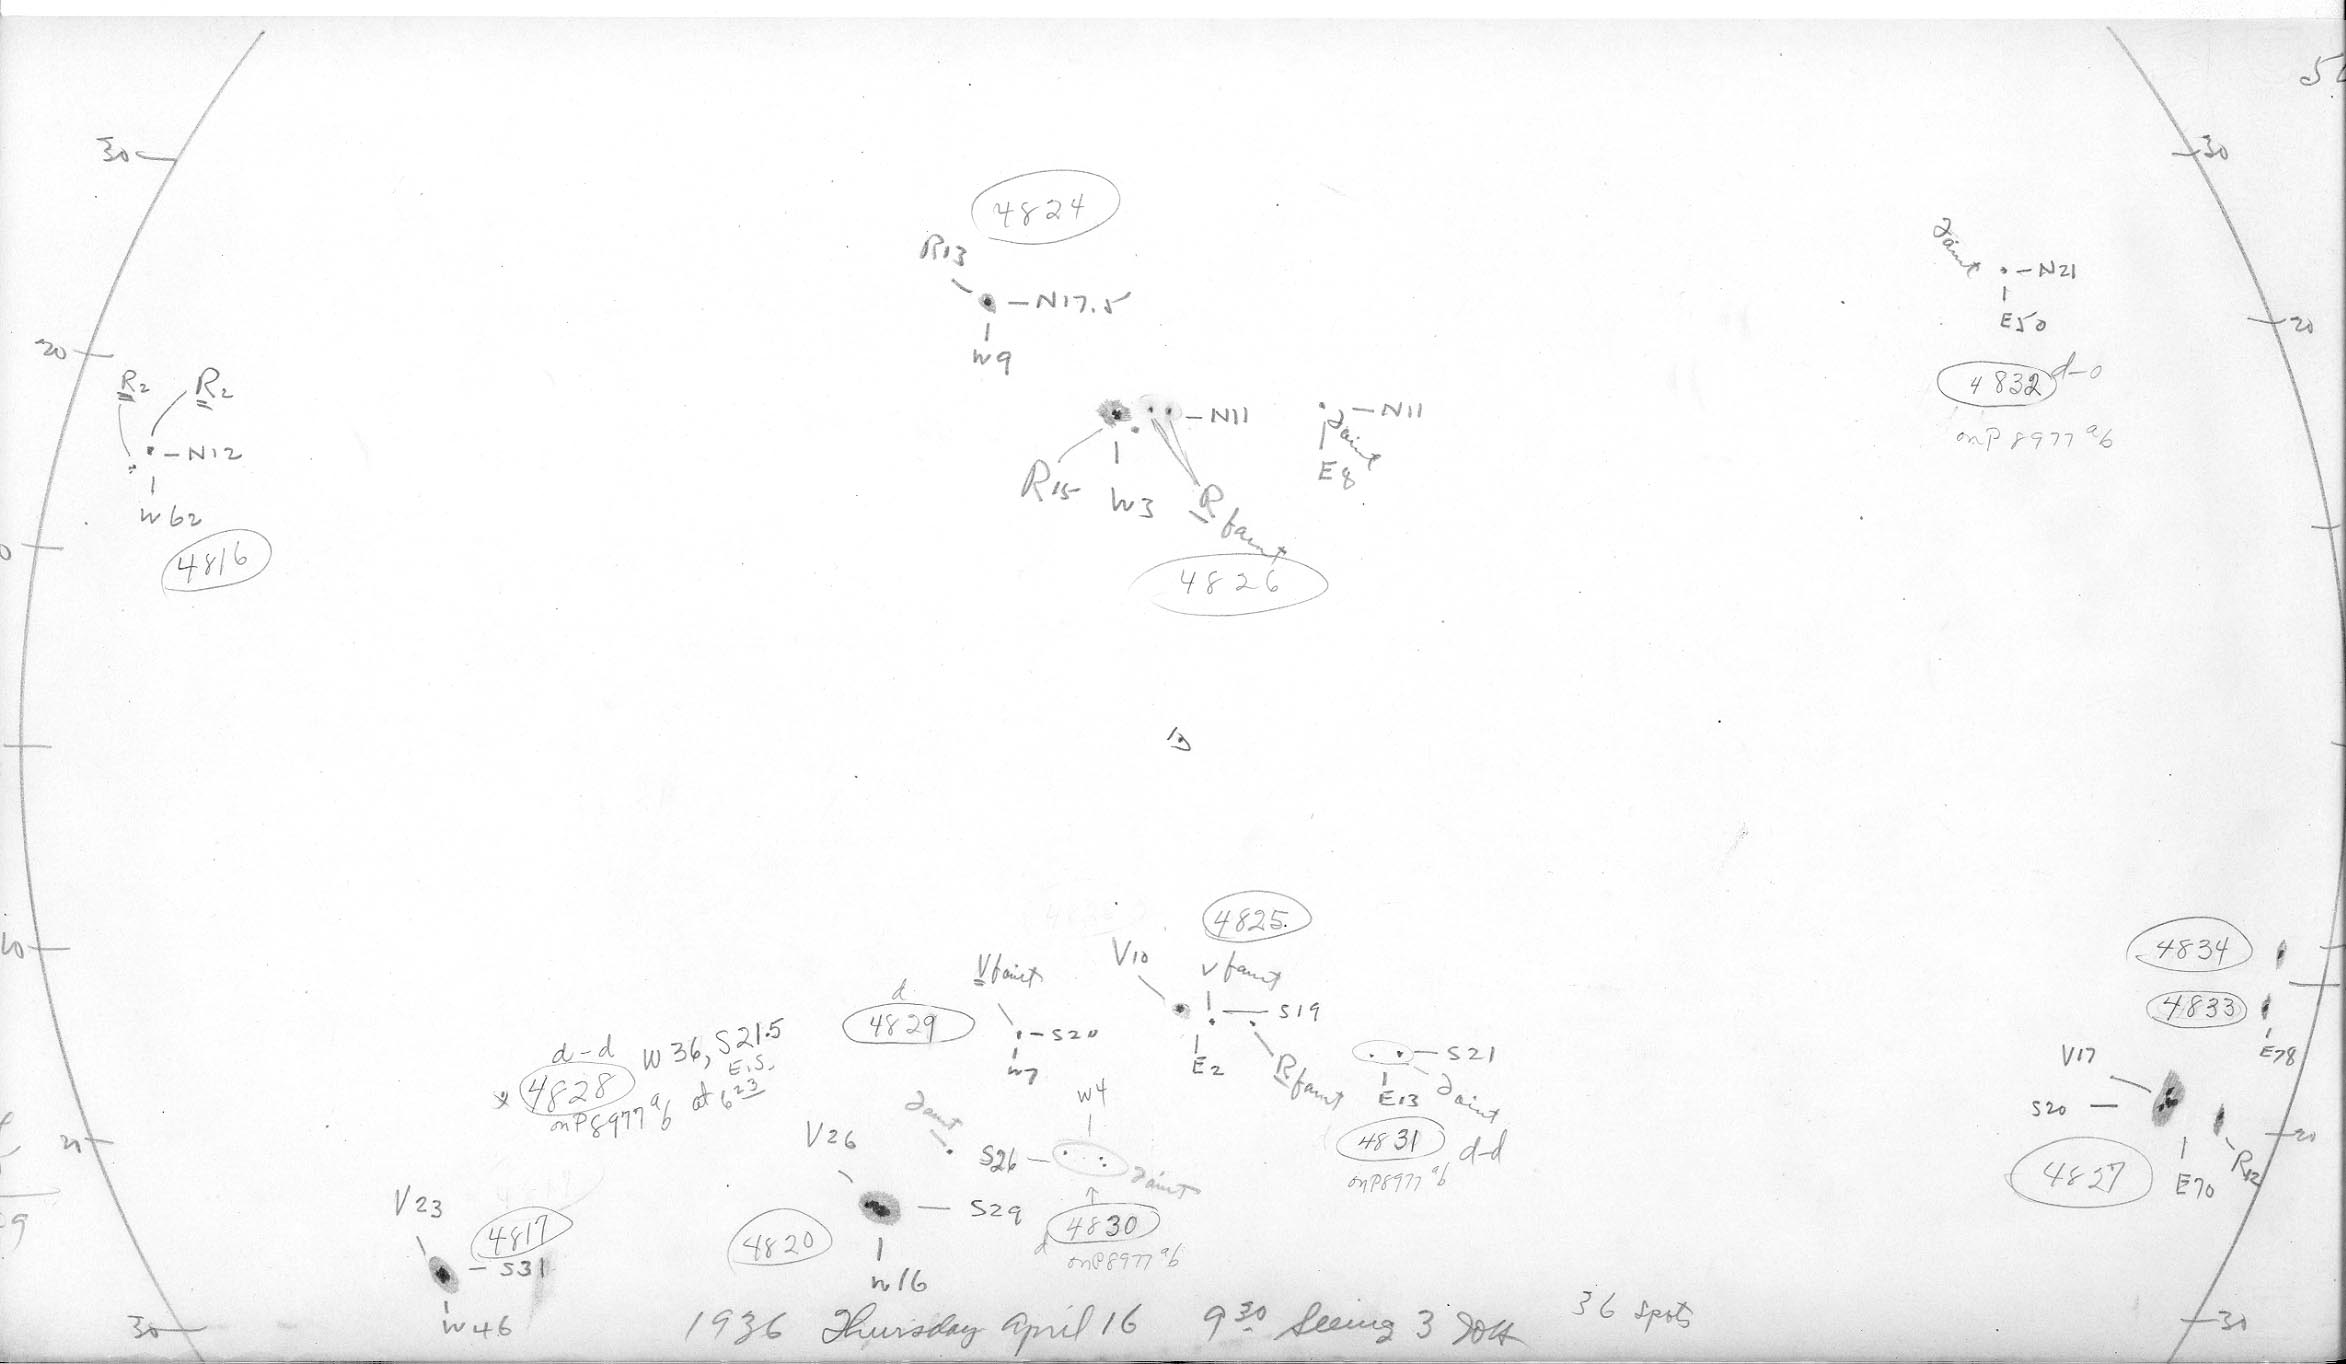 30
30
4824
R13
N17.5
W9
faint
N21
E50
4832 d-o
on P 8977 a/b
20
20
R2
R2
N12
W62
4816
N11
R15
W3
R faint
4826
N11
faint
E8
0
D
10
4825
V10
V faint
S19
E2
R faint
V faint
S20
W7
d
4829
d-d
* 4828
on P 8977 a/b
W36, S21.5
E.S.
at 6 23
S21
faint
E13
4831 d-d
on P 8977 a/b
4834
4833
E78
V17
S20
4827
E70
R12
20
V26
faint
W4
S26
faint
4830
d
on P 8977 a/b
S29
4820
W16
V23
4817
S31
W46
9
30
30
1936 Thursday April 16 9 30 Seeing 3
36 spots